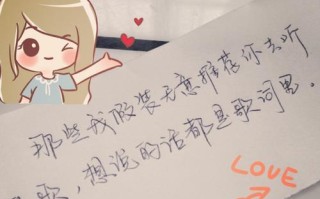 那些我假装无意推荐你去听
歌，想说的话都是歌词里.
LOVE